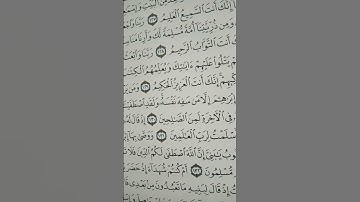 مِنَ ٱلْبَيْتِ وَإِسْمَـ
إِنَّكَ أَنتَ ٱلسَّمِيعُ ٱلْعَلِيمُ ١٢٧ رَبَّنَا وَٱجْـ
وَمِن ذُرِّيَّتِنَآ أُمَّةً مُّسْلِمَةً لَّكَ وَأَرِنَا مَنَاسِـ
أَنتَ ٱلتَّوَّابُ ٱلرَّحِيمُ ١٢٨ رَبَّنَا وَٱبْعَثْ
يَتْلُوا۟ عَلَيْهِمْ ءَايَٰتِكَ وَيُعَلِّمُهُمُ ٱلْكِتَٰبَ
ـكِّيهِمْ إِنَّكَ أَنتَ ٱلْعَزِيزُ ٱلْحَكِيمُ ١٢٩ وَمَن يَرْ
إِبْرَٰهِـۧمَ إِلَّا مَن سَفِهَ نَفْسَهُۥ وَلَقَدِ ٱصْطَفَيْنَـ
فِى ٱلْـَٔاخِرَةِ لَمِنَ ٱلصَّٰلِحِينَ ١٣٠ إِذْ قَالَ لَـ
أَسْلَمْتُ لِرَبِّ ٱلْعَٰلَمِينَ ١٣١ وَوَصَّىٰ بِهَآ إِبْـ
ـقُوبُ يَٰبَنِىَّ إِنَّ ٱللَّهَ ٱصْطَفَىٰ لَكُمُ ٱلدِّينَ فَلَا
مُّسْلِمُونَ ١٣٢ أَمْ كُنتُمْ شُهَدَآءَ إِذْ حَضَرَ
إِذْ قَالَ لِبَنِيهِ مَا تَعْبُدُونَ مِنۢ بَعْدِى قَا